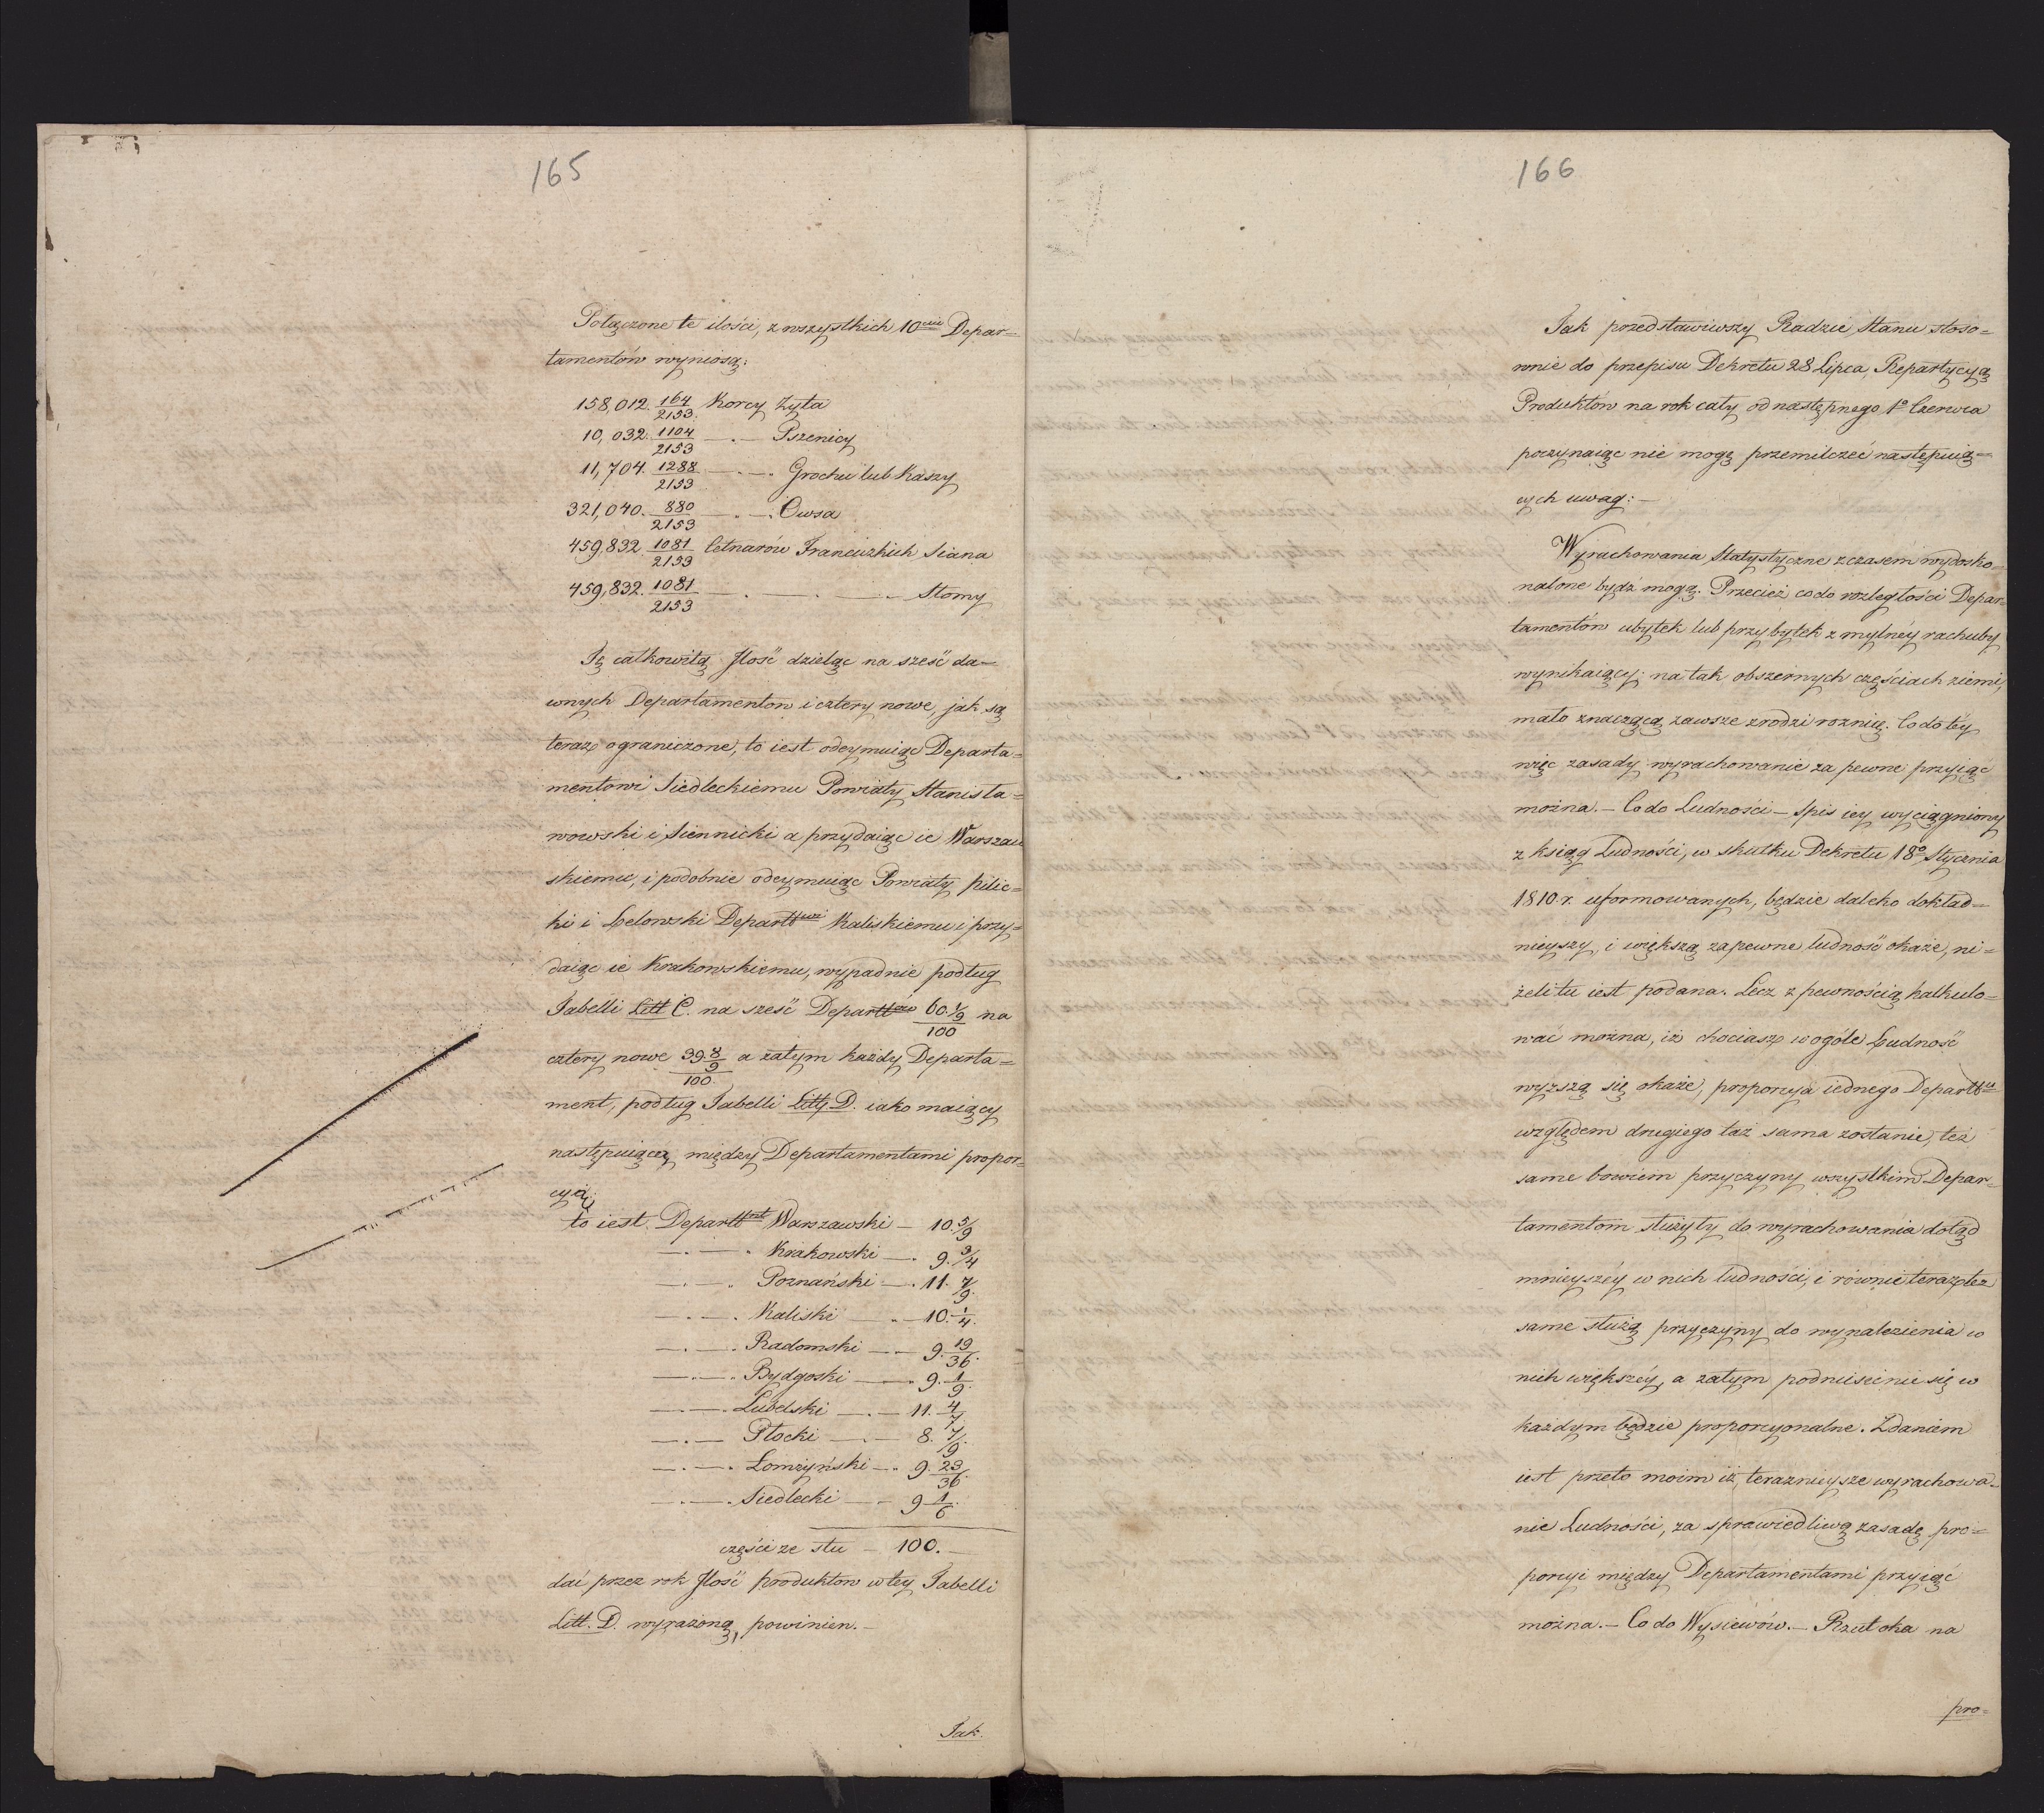 165
Połączone te ilości, z wszystkich 10ciu Depar=
tamentów wyniosą:
158,012. 164/2153. Korcy Zyta
10,032. 1104/2153 —.— Pszenicy
11,704. 1288/2153 —.—. Grochu lub Kaszy
321,040. 880/2153 —.—. Owsa
459,832. 1081/2153 Cetnarów Francuzkich Siana
459,832. 1081/2153 —.—.— Słomy
Tę całkowitą Jlość dzieląc na sześć da=
wnych Departamentow i cztery nowe, jak są
teraz ograniczone, to iest odeymuiąc Departa=
mentowi Siedleckiemu Powiaty Stanisła=
wowski i Siennicki a przydaiąc ie Warszaw
skiemu, i podobnie odeymuiąc Powiaty Pilic=
ki i Lelowski Departtwi Kaliskiemu i przy=
daiąc ie Krakowskiemu, wypadnie podług
Tabelli Litt C. na sześć Departtów 60.1/9/100 na
cztery nowe 39.8/9/100 a zatym każdy Departa=
ment, podług Tabelli Litt D. iako maiący
następuiącą między Departamentami propor=
cyią,
to iest. Departtnt Warszawski — 10.5/9
—.—. Krakowski —. 9.3/4
—.—. Poznański —. 11.7/9.
—.—. Kaliski —.— 10.1/4.
—.—. Radomski —.— 9.19/36.
—.—. Bydgoski —.— 9.1/9.
—.—. Lubelski —.— 11.4/7
—.— Płocki —.— 8.7/9.
—.—. Łomżyński —. 9.23/36.
—.—. Siedlecki —.— 9 1/6.
części ze stu — 100.—
dać przez rok Jlość produktow w tey Tabelli
Litt. D. wyrażoną, powinien.—
Jak.
166
Jak przedstawiwszy Radzie Stanu stoso=
wnie do przepisu Dekretu 28 Lipca, Repartycyą
Produktów na rok cały od następnego 1o Czerwca
poczynaiąc nie mogę przemilczeć następuią=
cych uwag:—
Wyrachowania Statystyczne z czasem wydosko=
nalone bydź mogą. Przecież co do rozległości Depar=
tamentów ubytek lub przybytek z mylnéy rachuby
wynikaiący; na tak obszernych częściach ziemi,
mało znaczącą zawsze zrodzi roznicę. Co do téy
więc zasady wyrachowanie za pewne przyiąc
można.— Co do Ludności — Spis iey wyciągniony
z ksiąg Ludności, w skutku Dekretu 18o Stycznia
1810. r. uformowanych, będzie daleko dokład=
nieyszy, i większą zapewne ludność okaże, ni=
żeli tu iest podana. Lecz z pewnością kalkulo=
wać można, iż chociasz w ogóle Ludność
wyższą się okaże, proporcya iednego Departtu
względem drugiego taż sama zostanie, też
same bowiem przyczyny wszystkim Depar=
tamentom służyły do wyrachowania dotąd
mnieyszéy w nich ludności, i równie teraz też
same służą przyczyny do wynalezienia w
nich większéy, a zatym podniesienie się w
każdym będzie proporcyonalne. Zdaniem
iest przeto moim iż terazniejsze wyrachowa=
nie Ludności, za sprawiedliwą zasadę pro=
porcyi między Departamentami przyiąć
można.— Co do Wysiewów.— Rzut oka na
pro=